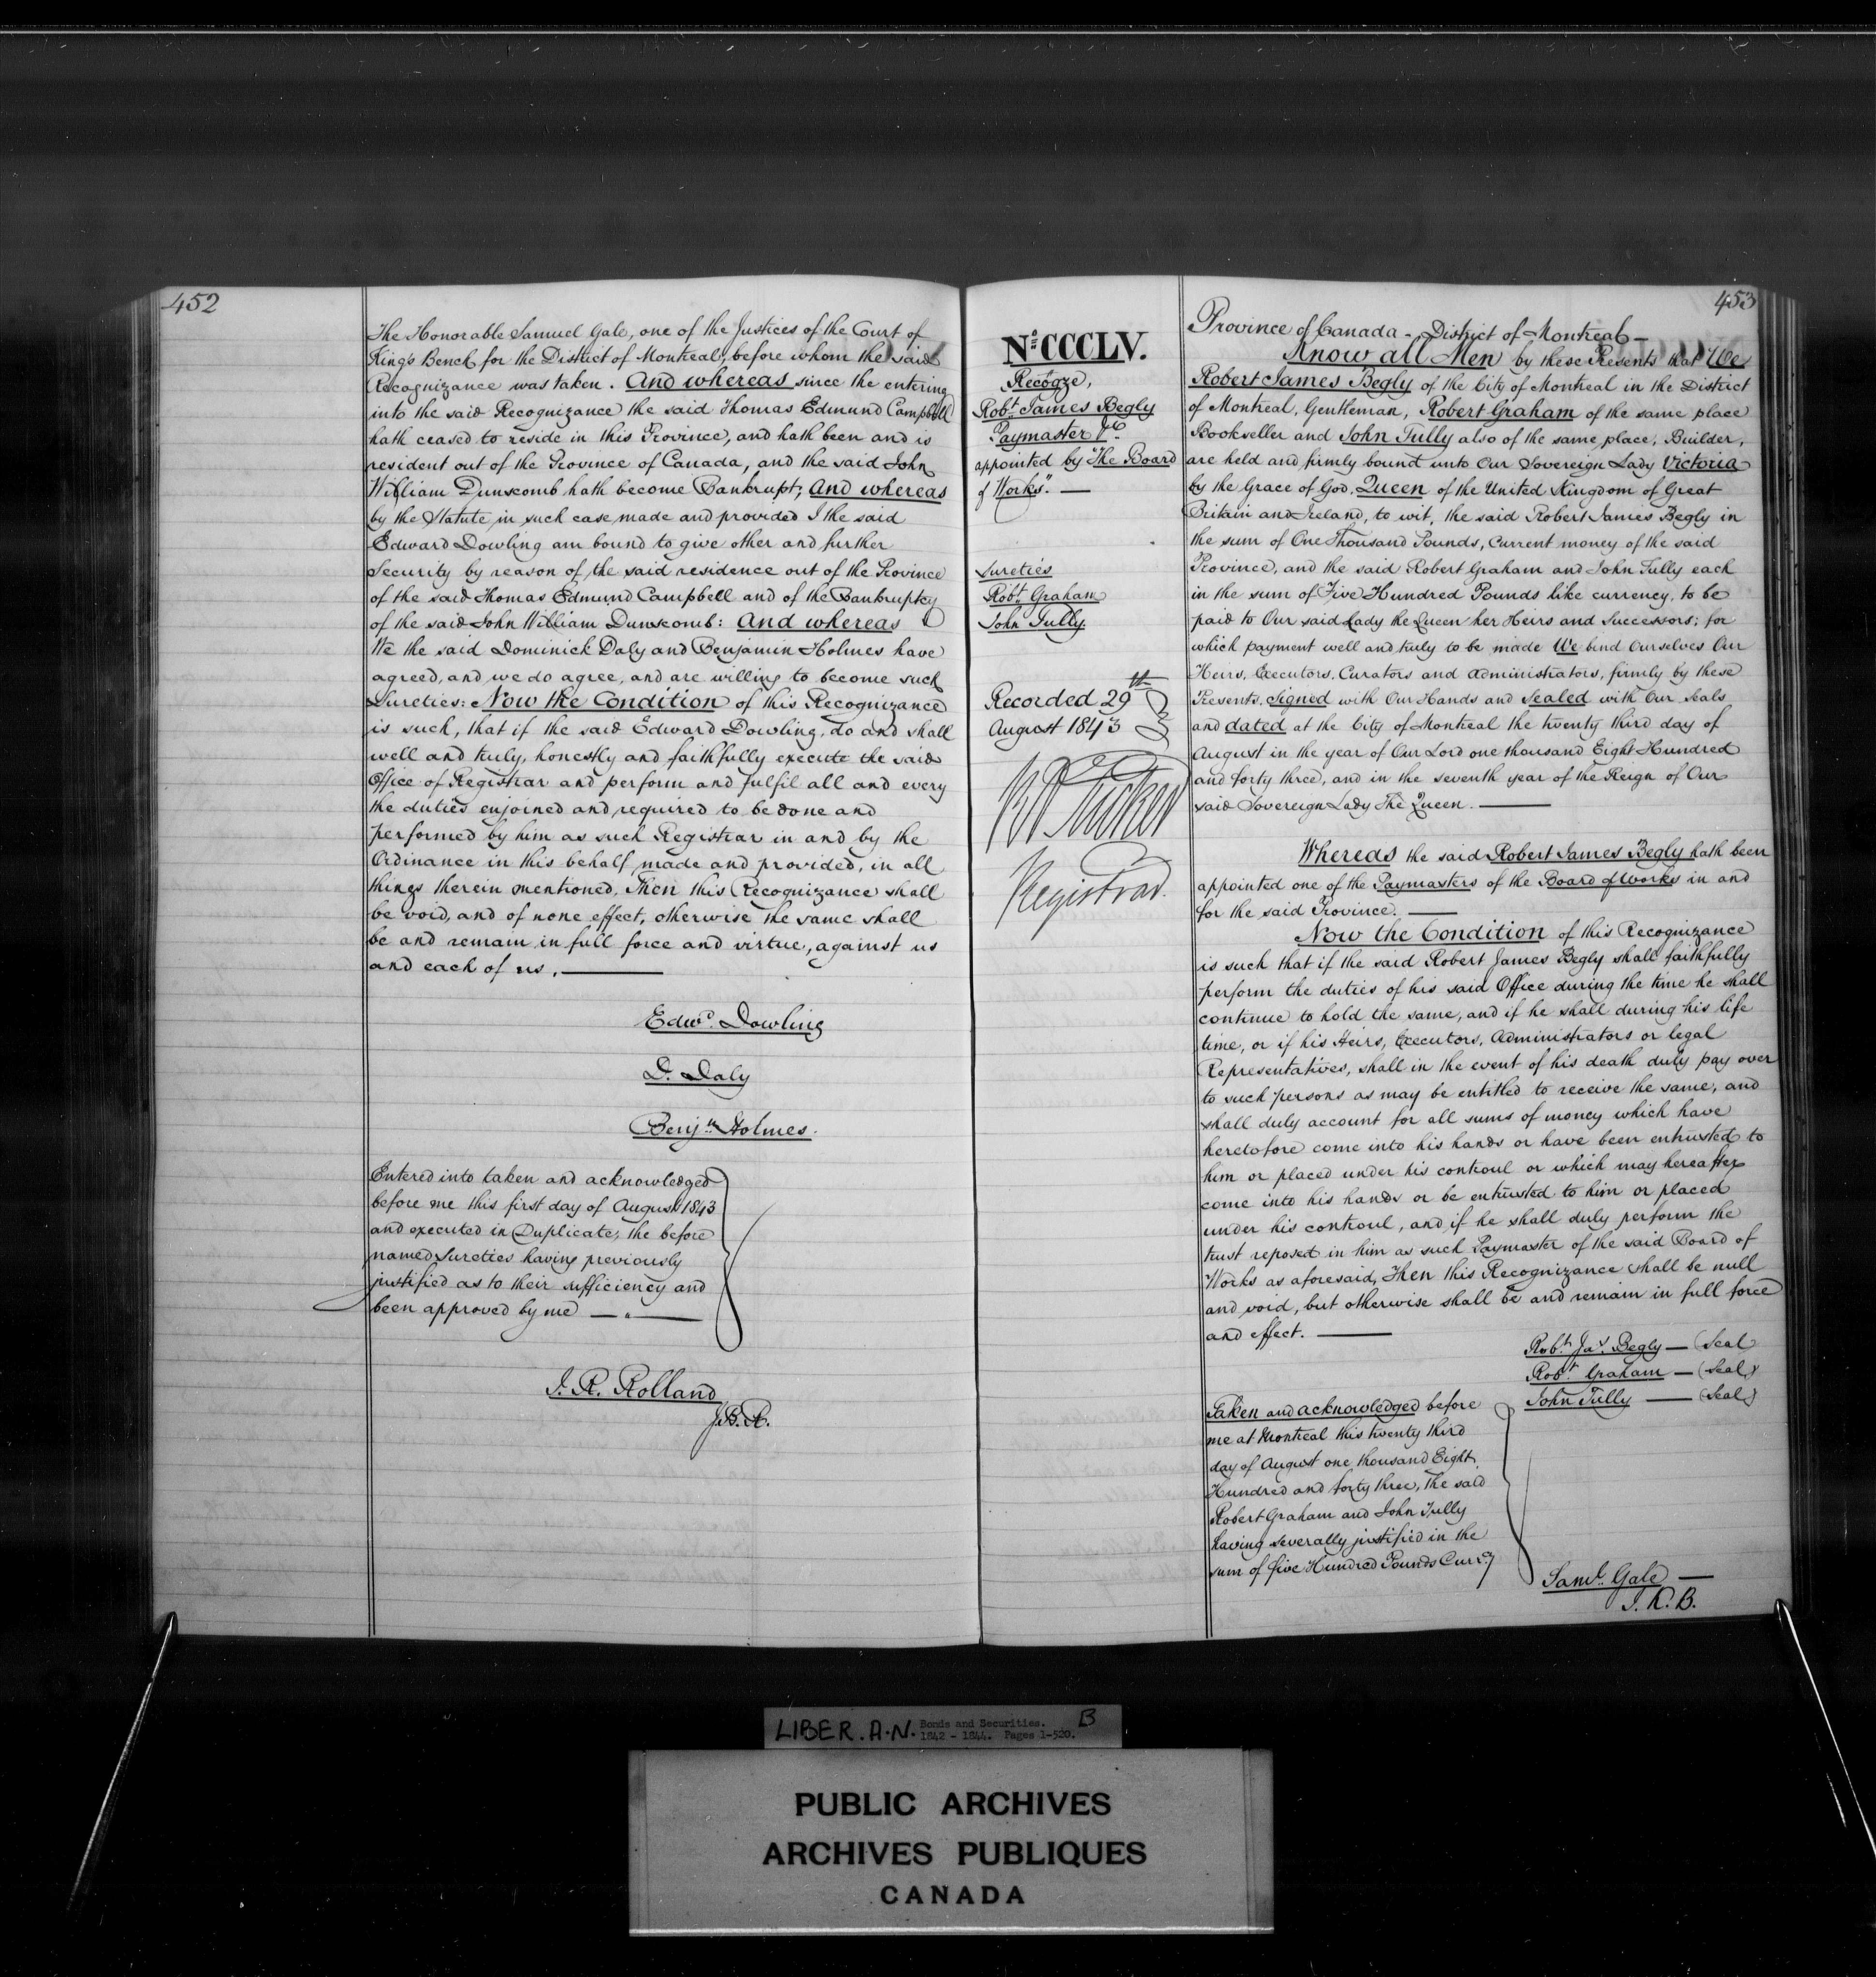 452
The Honorable Samuel Gale, one of the Justices of the Court of
King's Bench for the District of Montreal, before whom the said
Recognizance was taken. And whereas since the entering
into the said Recognizance the said Thomas Edmund Campbell
hath ceased to reside in this Province, and hath been and is
resident out of the Province of Canada, and the said John
William Dunscomb hath become Bankrupt; And whereas
by the Statute in such case made and provided I the said
Edward Dowling am bound to give other and further
Security by reason of the said residence out of the Province
of the said Thomas Edmund Campbell and of the Bankruptcy
of the said John William Dunscomb: And whereas
We the said Dominick Daly and Benjamin Holmes have
agreed, and we do agree, and are willing to become such
Sureties: Now the Condition of this Recognizance
is such, that if the said Edward Dowling, do and shall
well and truly, honestly and faithfully execute the said
Office of Registrar and perform and fulfil all and every
the duties enjoined and required to be done and
performed by him as such Registrar in and by the
Ordinance in this behalf made and provided, in all
things therein mentioned, Then this Recognizance shall
be void, and of none effect, otherwise the same shall
be and remain in full force and virtue, against us
and each of us.
Edwd. Dowling
D. Daly
Benjn. Holmes.
Entered into taken and acknowledged
before me this first day of August 1843
and executed in Duplicate; the before
named Sureties having previously
justified as to their sufficiency and
been approved by me
J. R. Rolland
J.B.R.
No. CCCLV.
Recogze,
Robt. James Begly
Paymaster &c.
appointed by The Board
of Works".
Sureties
Robt. Graham
John Tully
Recorded 29th
August 1843
R A Tucker
Registrar.
453
Province of Canada - District of Montreal -
Know all Men by these Presents that We
Robert James Begly of the City of Montreal in the District
of Montreal, Gentleman, Robert Graham of the same place
Bookseller and John Tully also of the same place, Builder,
are held and firmly bound unto Our Sovereign Lady Victoria
by the Grace of God, Queen of the United Kingdom of Great
Britain and Ireland, to wit, the said Robert James Begly in
the sum of One Thousand Pounds, Current money of the said
Province, and the said Robert Graham and John Tully each
in the sum of Five Hundred Pounds like currency, to be
paid to Our said Lady the Queen her Heirs and Successors; for
which payment well and truly to be made We bind Ourselves Our
Heirs, Executors, Curators and Administrators, firmly by these
Presents, Signed with Our Hands and Sealed with Our Seals
and dated at the City of Montreal the twenty third day of
August in the year of Our Lord one thousand Eight Hundred
and forty three, and in the seventh year of the Reign of Our
said Sovereign Lady The Queen.
Whereas the said Robert James Begly hath been
appointed one of the Paymasters of the Board of Works in and
for the said Province.
Now the Condition of this Recognizance
is such that if the said Robert James Begly shall faithfully
perform the duties of his said Office during the time he shall
continue to hold the same, and if he shall during his life
time, or if his Heirs, Executors, Administrators or legal
Representatives, shall in the event of his death duly pay over
to such persons as may be entitled to receive the same, and
shall duly account for all sums of money which have
heretofore come into his hands or have been entrusted to
him or placed under his controul or which may hereafter
come into his hands or be entrusted to him or placed
under his controul, and if he shall duly perform the
trust reposed in him as such Paymaster of the said Board of
Works as aforesaid, Then this Recognizance shall be null
and void, but otherwise shall be and remain in full force
and effect.
Robt. Jas. Begly — (Seal
Robt. Graham — (Seal)
John Tully — (Seal)
Taken and acknowledged before
me at Montreal this twenty third
day of August one thousand Eight
Hundred and forty three, The said
Robert Graham and John Tully
having severally justified in the
sum of five Hundred Pounds Curcy
Saml. Gale
J. K. B.
LIBER. A.N. Bonds and Securities. B
1842 - 1844. Pages 1-520.
PUBLIC ARCHIVES
ARCHIVES PUBLIQUES
CANADA